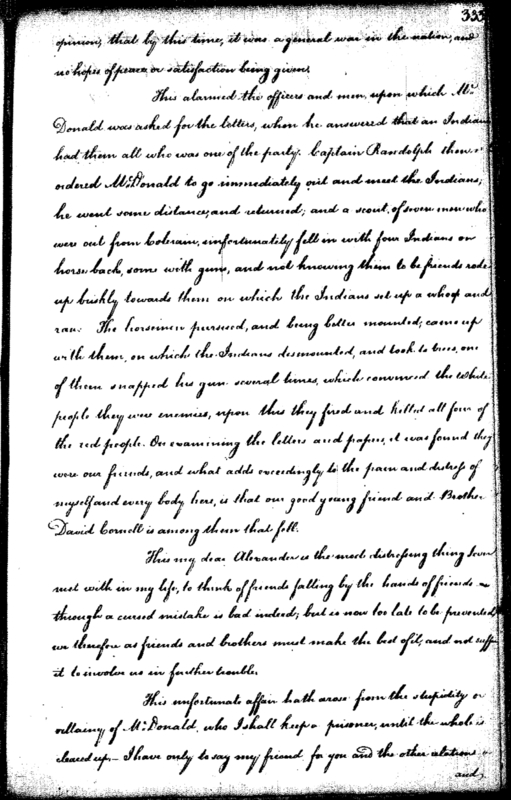 333
opinion, that by this time, it was a general war in the nation, and
no hopes of peace or satisfaction being given.
This alarmed the officers and men, upon which Mr.
Donald was asked for the letters, when he answered that an Indian
had them all who was one of the party. Captain Randolph then
ordered McDonald to go immediately out and meet the Indians;
he went some distance, and returned; and a scout, of seven men who
were out from Colerain, unfortunately fell in with four Indians on
horse back, some with guns, and not knowing them to be friends rode
up briskly towards them on which the Indians set up a whoop and
ran: The horsemen pursued, and being better mounted; came up
with them, on which the Indians dismounted, and took to trees, one
of them snapped his gun several times, which convinced the white
people they were enemies, upon this they fired and killed all four of
the red people. On examining the letters and papers, it was found they
were our friends, and what adds exceedingly to the pain and distress of
myself and every body here, is that our good young friend and Brother
David Cornell is among them that fell.
This my dear Alexander is the most distressing thing I ever
met with in my life, to think of friends falling by the hands of friends
through a cursed mistake is bad indeed; but is now too late to be prevented,
we therefore as friends and brothers must make the best of it, and not suffer
it to involve us in further trouble.
This unfortunate affair hath arose from the stupidity or
villainy of McDonald, who I shall keep a prisoner, until the whole is
cleared up. I have only to say my friend for you and the other relations
and